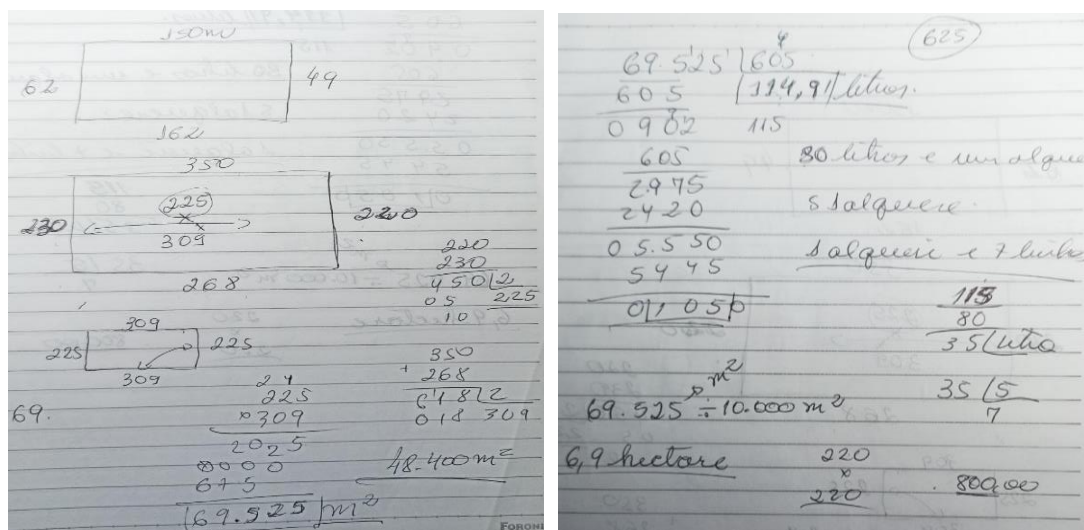 150m
62
49
162
350
230
225
220
309
268
220
230
450 2
05 2,25
10
309
225
225
309
350
+ 268
618 2
018 309
24
225
×309
69.
2025
0000
675
69.525 m²
48.400m²
FORONI
625
4
69.525 605
605 114,91 litros.
0902 115
605
2975
2420
05.550
5445
01050
80 litros e um alque
5 alquere.
1 alqueire e 7
115
80
35 litro
35 5
7
69.525 m² ÷ 10.000 m²
6,9 hectare
220
×
220
800,00